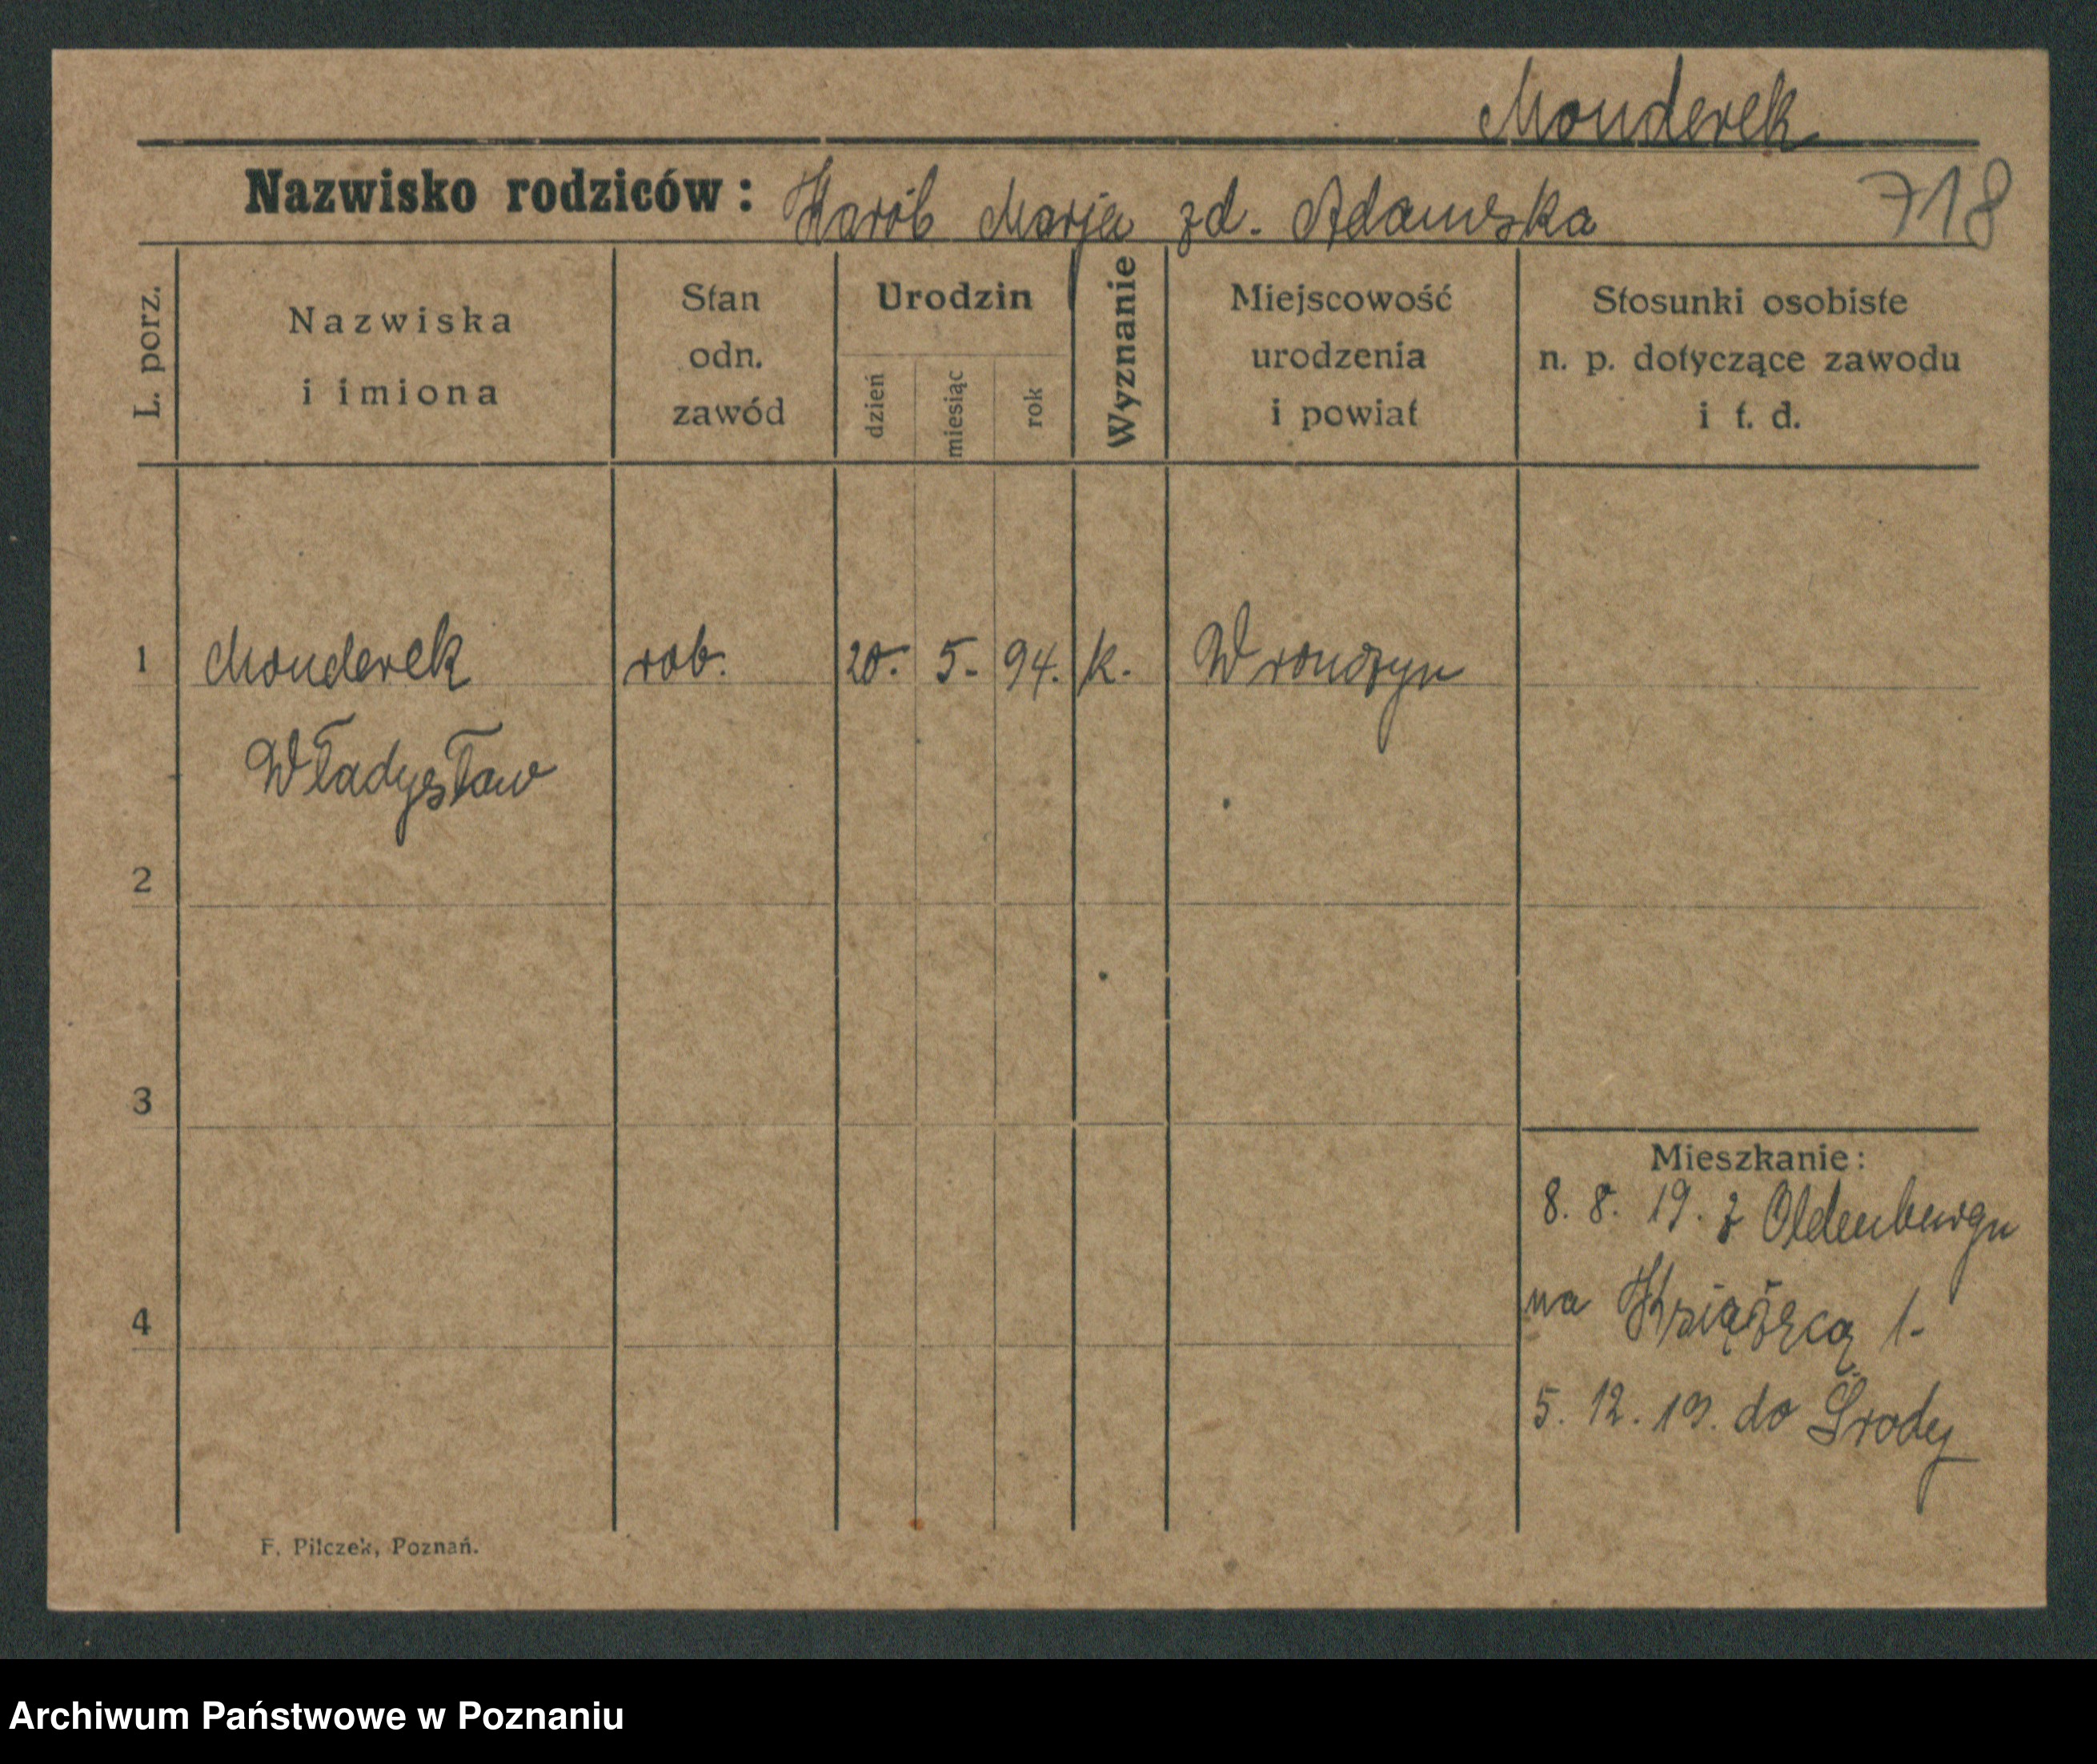 Monderek
Nazwisko rodziców: Karól Marja zd. Adamska
718
L. porz.
Nazwiska
i imiona
Stan
odn.
zawód
Urodzin
dzień
miesiąc
rok
Wyznanie
Miejscowość
urodzenia
i powiat
Stosunki osobiste
n. p. dotyczące zawodu
i t. d.
1 Monderek rob. 20. 5. 94. k. Wronczyn
Władysław
2
3
Mieszkanie:
8. 8. 19. z Oldenburgu
na Książęcą 1.
4
5. 12. 19. do Środy
F. Pilczek, Poznań.
Archiwum Państwowe w Poznaniu